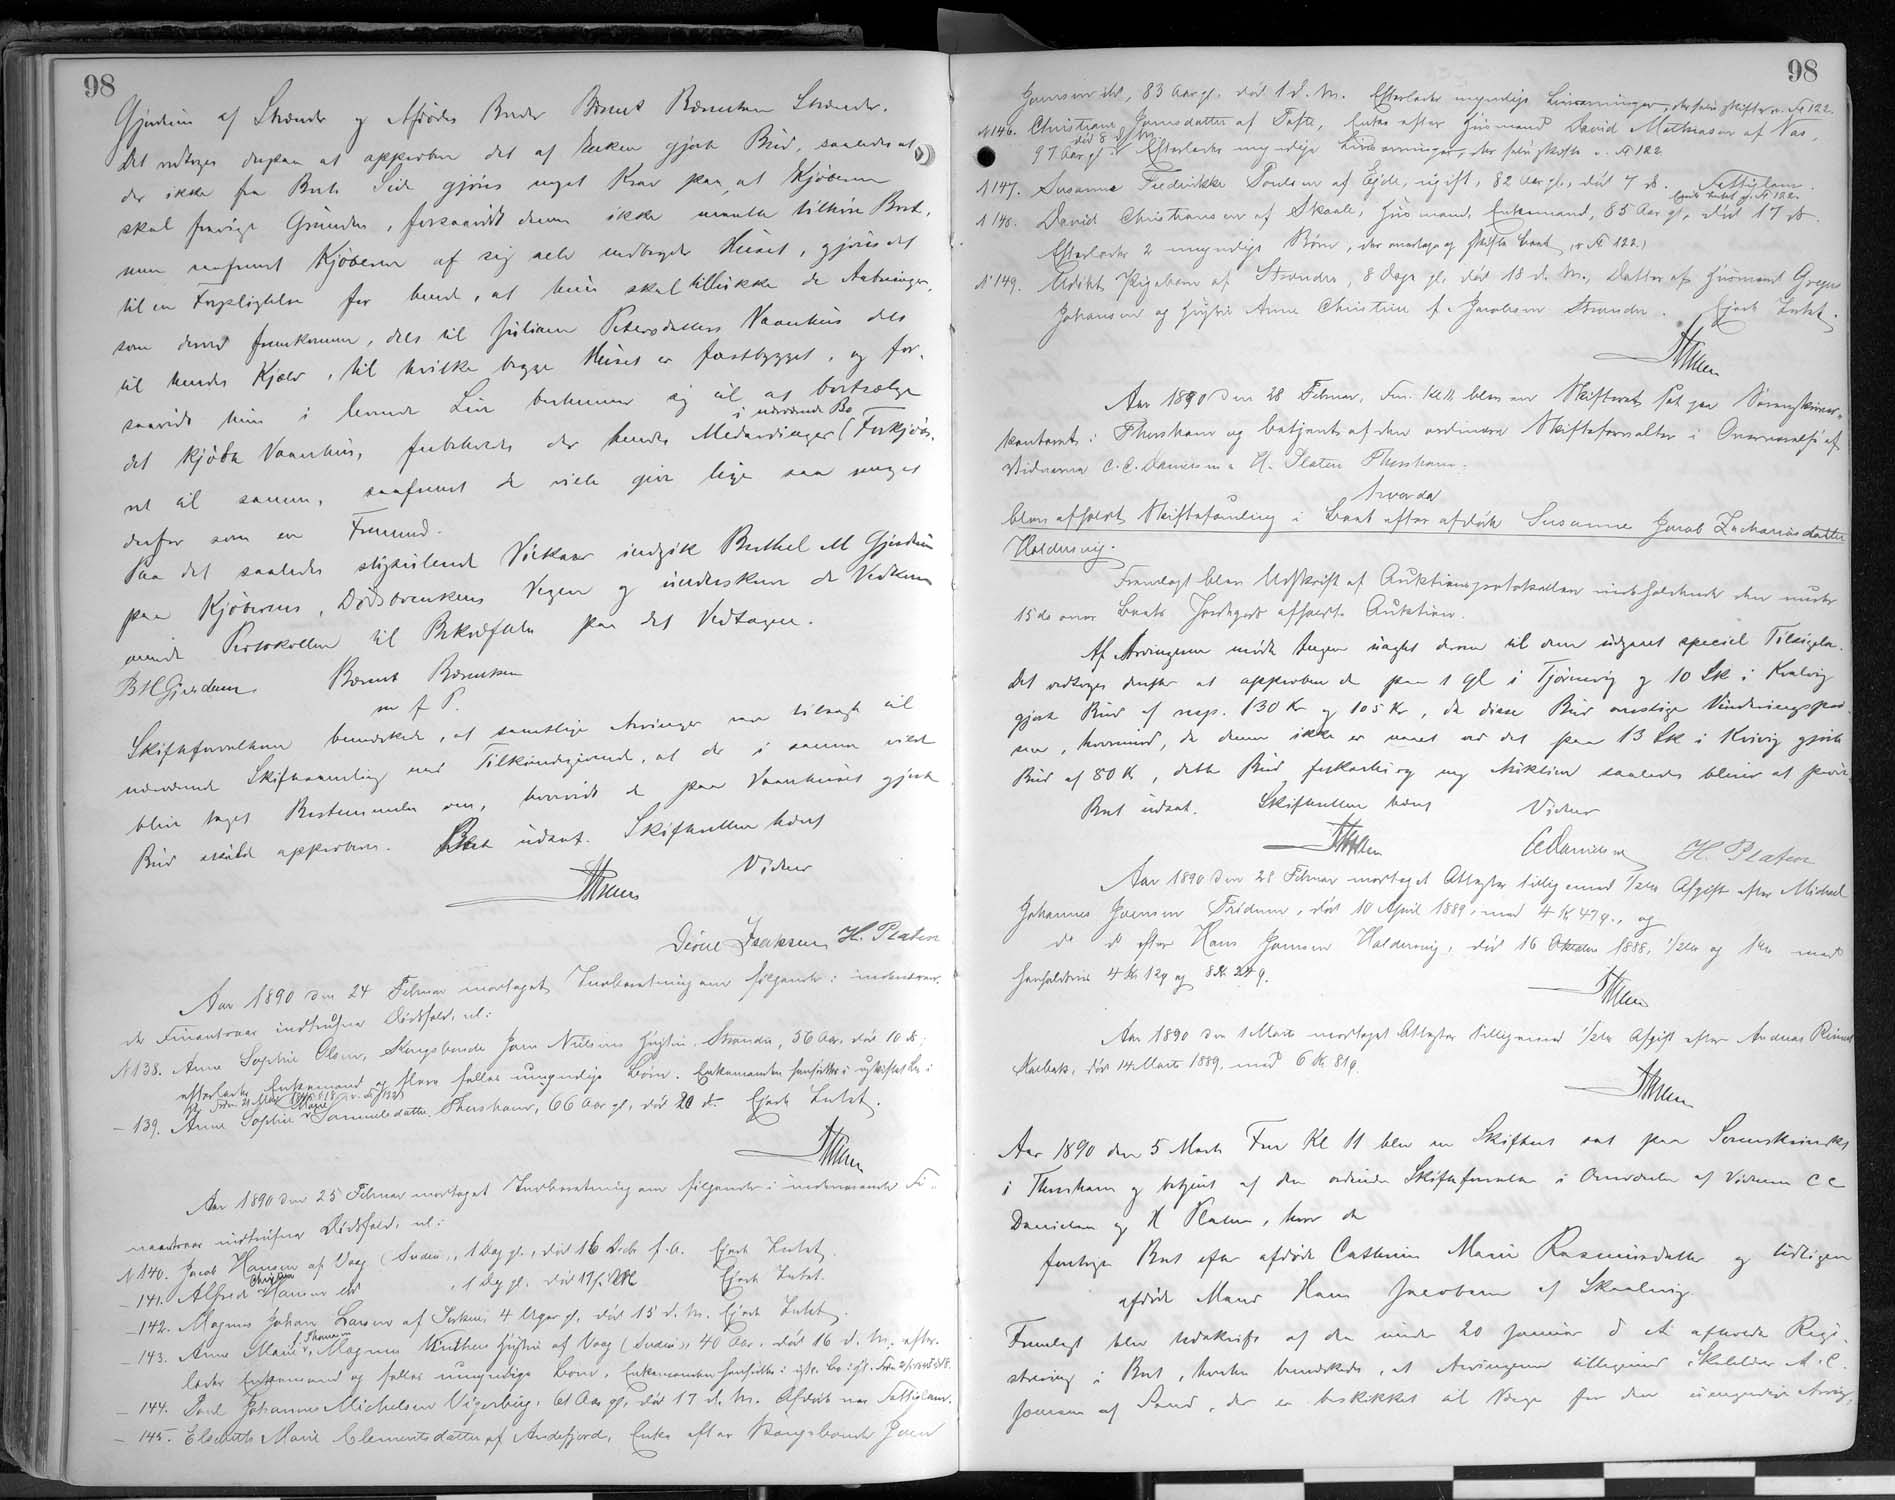 98
Gjerdum af Strænder og Afdødes Broder Bærent Bærentsen Strænder.
Det vedtoges derpaa at approbere det af Enken gjorte Bud, saaledes at
der ikke fra Boets Side gjøres noget Krav paa, at Kjøberen
skal fravige Grunden, forsaavidt denne ikke maatte tilhøre Boet,
men saafremt Kjøberen af sig selv nedbryder Huset, gjøres det
til en Forpligtelse for hende, at hun skal tillukke de Aabninger,
som derved fremkomme, dels til Juliane Petersdatters Vaanhus dels
til hendes Kjæld, til hvilke begge Huset er fastbygget, og for-
saavidt hun i levende Live bestemmer sig til at bortsælge
det kjøbte Vaanhus, forbeholdes der hendes Medarvinger i nærværende Bo Forkjøbs-
ret til samme, saafremt de ville give lige saa meget
derfor som en Fremmed.
Paa det saaledes stipulerede Vilkaar indgik Berthel M Gjerdum
paa Kjøberens, Dødsboenkens Vegne og underskrev de Vedkom
mende Protokollen til Bekræftelse paa det Vedtagne.
B M Gjerdum Bærent Bærentsen
m f P.
Skifteforvalteren bemærkede, at samtlige Arvinger var tilsagt til
nærværende Skiftesamling med Tilkjendegivende, at der i samme vilde
blive taget Bestemmelse om, hvorvidt de paa Vaanhuset gjorte
Bud skulde approberes. Boet udsat. Skifteretten hævet
Vidner
Isaksen H. Platen
Aar 1890 den 24 Februar modtaget Indberetning om følgende i indeværen-
de Finantsaar indtrufne Dødsfald, nl:
N 138. Anne Sophie Olsen, Kongsbonde Joen Nielsens Hustru, Strænder, 56 Aar, død 10 ds;
efterlader Enkemand og flere fælles umyndige Børn. Enkemanden hensidder i uskiftet Bo i
— 139. Anne Sophie Marie Samuelsdatter Thorshavn, 66 Aar gl, død 20 ds. Ejede Intet.
Aar 1890 den 25 Februar modtaget Indberetning om følgende i indeværende Fi-
nantsaar indtrufne Dødsfald, nl:
N 140. Jacob Hansen af Vaag (Suderø), 1 Dag gl., død 16 Decbr f. A. Ejede Intet.
— 141. Alfred Christian Hansen ibd, 1 Dag gl. død Ejede Intet.
— 142. Magnus Johan Larsen af 4 Uger gl, død 15 d. M. Ejede Intet.
— 143. Anne Marie f. Thomsen, Magnus Hustru af Vaag (Suderø), 40 Aar, død 16 d. M; efter-
lader Enkemand og fælles umyndige Børn, Enkemanden hensidder i uskf. Bo
— 144. Poul Johannes Michelsen Vigerbirg, 61 Aar gl, død 17 d. M. Afdøde var Fattiglem.
— 145. Elsebeth Marie Clementsdatter af Andefjord, Enke efter Kongsbonde Joen
98
Joensen ibd, 83 Aar gl. død 1 d. M. Efterlader myndige Livsarvinger, der selv skifte v. N 122.
N 146. Christiane Joensdatter af Tofte, Enke efter Husmand David Mathiasen af Næs,
97 Aar gl. død 8 d M. Efterlader myndige Livsarvinger, der selv skifte v. N 122
N 147. Susanne Fredrikke Poulsen af Ejde, ugift, 82 Aar gl, død 7 ds. Fattiglem.
Ejede Intet cf. N 122.
N 148. David Christiansen af Skaale, Husmand, Enkemand, 85 Aar gl, død 17 ds.
Efterlader 2 myndige Børn, der overtage og skifte Boet (v N 122.)
N 149. Udøbt Pigebarn af Strænder, 8 Dage gl, død 18 d. M., Datter af Husmand
Johansen og Hustru Anne Christine f. Jacobsen Strænder. Ejede Intet.
Aar 1890 den 28 Februar, Fm. Kl 11 blev en Skifteret sat paa Sørenskriver-
kontoret i Thorshavn og betjent af den ordinære Skifteforvalter i Overværelse af
Vidnerne C. C. Danielsen & H. Platen Thorshavn.
hvorda
blev afholdt Skiftesamling i Boet efter afdøde Susanne Jacob Zachariasdatter
Haldersvig.
Fremlagt blev Udskrift af Auktionsprotokollen indeholdende den under
15 ds over Boets Jordegods afholdte Auktion.
Af Arvingerne mødte Ingen uagtet derom til dem udgaaet speciel Tilsigelse.
Det vedtoges derefter at approbere de paa 1 Gl i Tjørnevig og 10 Sk i Kvalvig
gjorte Bud af resp. 130 Kr og 105 Kr, da disse Bud overstige Vurderingspri-
sen, hvorimod, da denne ikke er naaet ved det paa 13 Sk i Kvivig gjorte
Bud af 80 Kr, dette Bud forkastes og ny Auktion saaledes bliver at foran-
Boet udsat. Skifteretten hævet Vidner
CCDanielsen H. Platen
Aar 1890 den 28 Februar modtaget Attester tilligemed 1/2 Afgift efter Michael
Johannes Joensen Trødum, død 10 April 1889, med 4 Kr 47 Ø., og
do do efter Hans Joensen Haldersvig, død 16 Oktober 1888, 1/2 og 1 med
henholdsvis 4 Kr 12 Ø og 8 Kr 24 Ø.
Aar 1890 den 1 Marts modtaget Attester tilligemed 1/2 Afgift efter Andreas
Kalbak, død 14 Marts 1889, med 6 Kr 81 Ø.
Aar 1890 den 5 Marts Fm Kl 11 blev en Skifteret sat paa Sorenskriverkt
i Thorshavn og betjent af den ordinære Skifteforvalter i Overværelse af Vidnerne C C
Danielsen og H Platen, hvor da
foretoges Boet efter afdøde Cathrine Marie Rasmusdatter og tidligere
afdøde Mand Hans Jacobsen af Skaalevig.
Fremlagt blev Udskrift af den under 20 Januar d A afholdte Regi-
strering i Boet, hvorved bemærkedes, at Arvingerne tilligemed Skolelærer A. C.
Joensen af Sand, der er beskikket til Værge for den umyndige Arving,